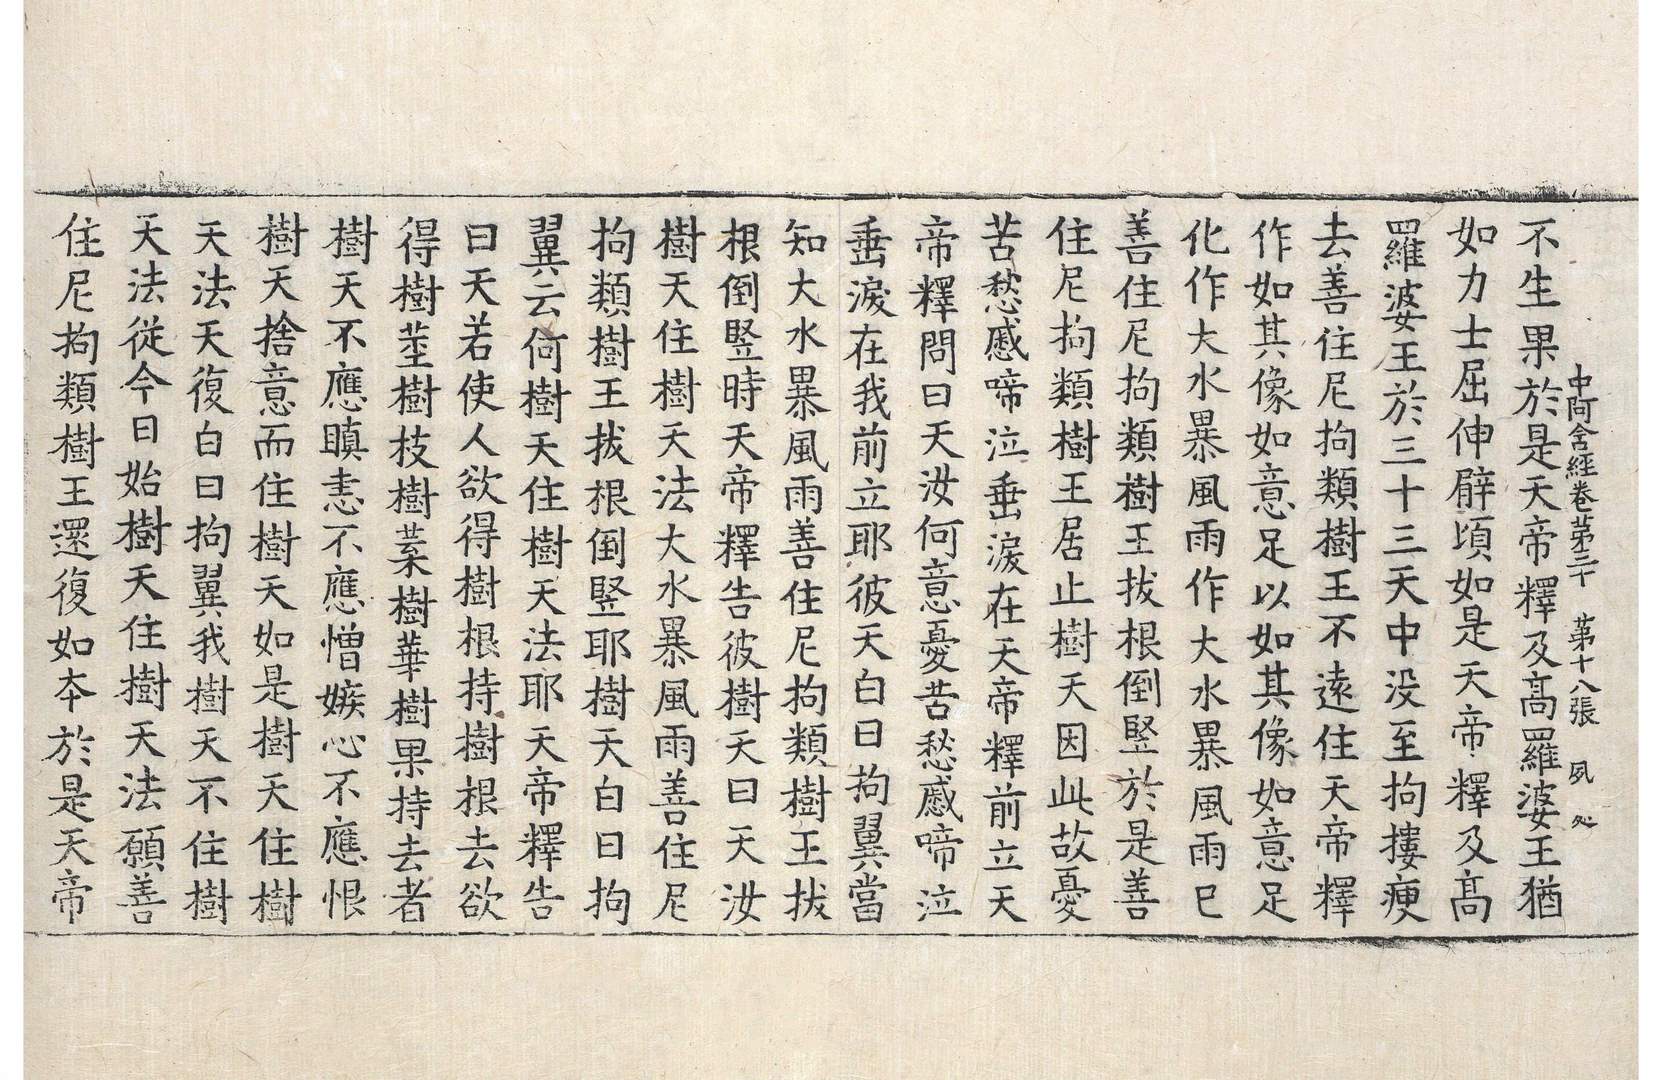 中阿含經卷第三十　第十八張　夙　処
不生果於是天帝釋及高羅婆王猶
如力士屈伸臂頃如是天帝釋及高
羅婆王於三十三天中没至拘摟瘦
去善住尼拘類樹王不遠住天帝釋
作如其像如意足以如其像如意足
化作大水暴風雨作大水暴風雨已
善住尼拘類樹王拔根倒竪於是善
住尼拘類樹王居止樹天因此故憂
苦愁慼啼泣垂淚在天帝釋前立天
帝釋問曰天汝何意憂苦愁慼啼泣
垂淚在我前立耶彼天白曰拘翼當
知大水暴風雨善住尼拘類樹王拔
根倒竪時天帝釋告彼樹天曰天汝
樹天住樹天法大水暴風雨善住尼
拘類樹王拔根倒竪耶樹天白曰拘
翼云何樹天住樹天法耶天帝釋告
曰天若使人欲得樹根持樹根去欲
得樹莖樹枝樹葉樹華樹果持去者
樹天不應瞋恚不應憎嫉心不應恨
樹天捨意而住樹天如是樹天住樹
天法天復白曰拘翼我樹天不住樹
天法從今日始樹天住樹天法願善
住尼拘類樹王還復如本於是天帝